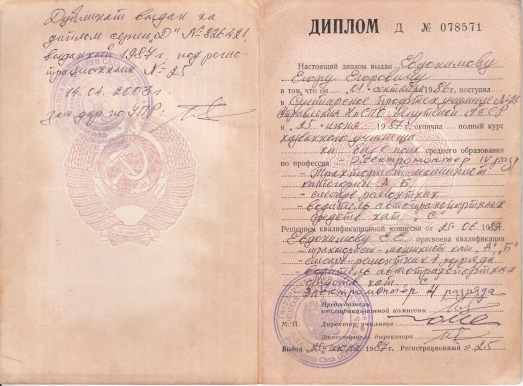 Дубликат выдан на
диплом серии „Д" № 826421,
выданный 1987 г. под регис-
трационным № 25.
14.04.2003 г.
зам. дир. по УПР:
ДИПЛОМ Д № 078571
Настоящий диплом выдан Евдокимову
Егору Егоровичу
в том, что он 01 сентября 1986 г. поступил
в Сунтарское профтехучилище №
Якутской АССР
и 25 июня 1987 г. окончил полный курс
названного училища
на базе полн. среднего образования
по профессии - Электромонтер IV разр
- Тракторист-машинист
категории А, Б,
- слесарь-ремонтник
- водитель автотранспортных
средств кат. „С"
Решением квалификационной комиссии от 25.06.1987
Евдокимову Е.Е. присвоена квалификация
- тракторист-машинист кат. А, „Б"
- слесарь-ремонтник разряда
- водитель автотранспортных
средств кат. „С"
- электромонтер 4 разряда
Председатель
квалификационной комиссии
М. П. Директор училища
Выдан 25 июня 1987 г. Регистрационный № 25